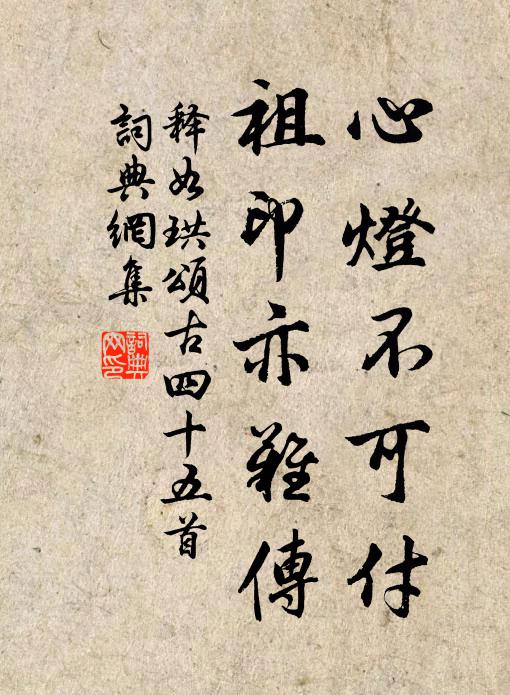 心燈不可付
祖印亦難傳
释如珙頌古四十五首
詞典網集
詞典网印